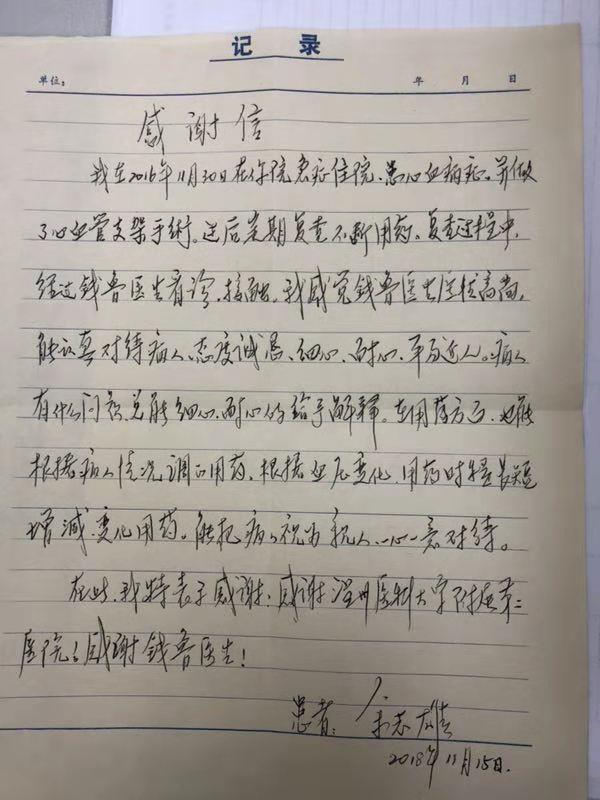 记 录
单位： 年 月 日
感谢信
我在2016年11月30日在你院急症住院、患心血病症。并做
了心血管支架手術。过后定期复查不断用药。复查过程中，
经过钱鲁医生看诊，接触。我感觉钱鲁医生医德高尚，
能认真对待病人、态度诚恳、细心、耐心、平易近人。病人
有什么问题总能细心、耐心的给予解释。在用药方面、也能
根据病人情况调正用药、根据血压变化，用药时轻
增减、变化用药。能把病人视为亲人、一心一意对待。
在此、我特表示感谢、感谢温州医科大学附属第二
医院；感谢钱鲁医生！
患者： 志雄
2018年11月15日.